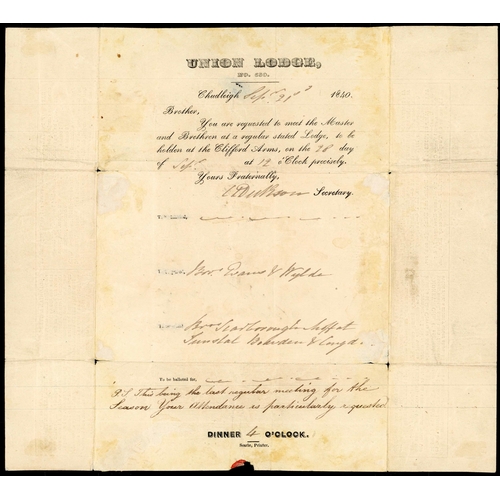 UNION LODGE,
NO. 650.
Chudleigh Sepr 21st 1840.
Brother,
You are requested to meet the Master
and Brethren at a regular stated Lodge, to be
holden at the Clifford Arms, on the 28 day
of Sepr. at 12 o'Clock precisely.
Yours Fraternally,
Secretary.
Bros Evans & Wylde
Bros Scarborough
To be balloted for,
PS This being the last regular meeting for the
Season Your Attendance is particularly requested
DINNER 4 O'CLOCK.
Searle, Printer.